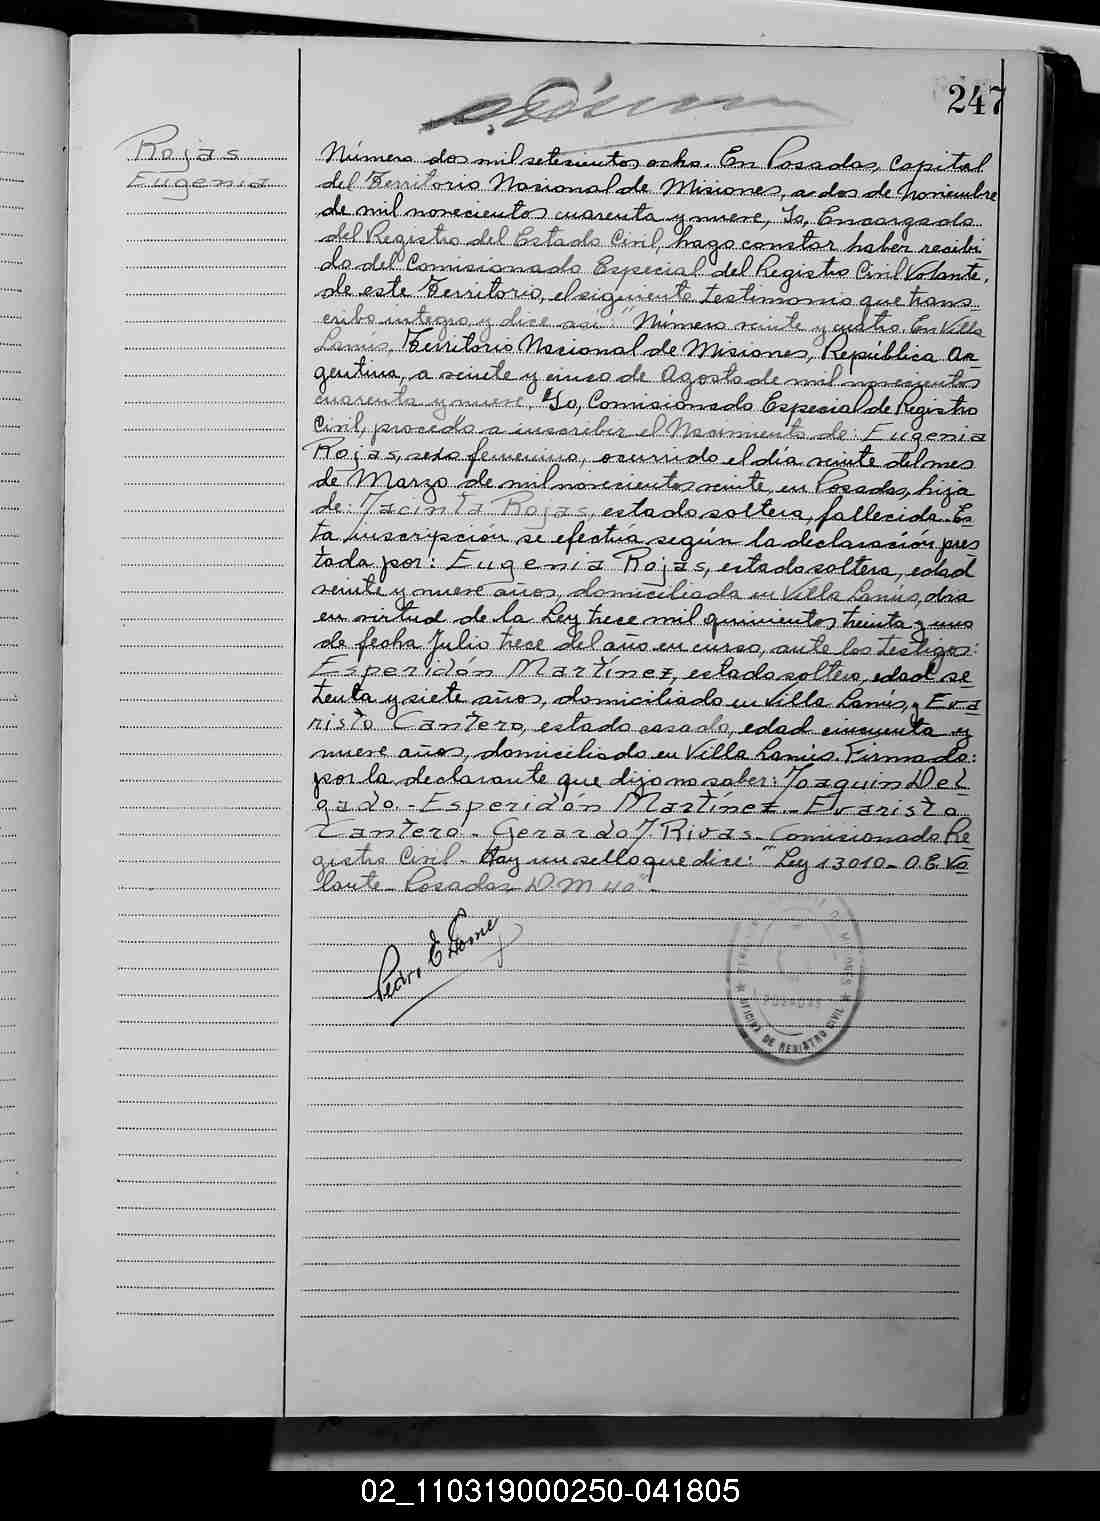 247
Rojas
Eugenia
Número dos mil setecientos ocho. En Posadas, Capital
del Territorio Nacional de Misiones, a dos de Noviembre
de mil novecientos cuarenta y nueve, Yo, Encargado
del Registro del Estado Civil, hago constar haber recibi-
do del Comisionado Especial del Registro Civil Volante,
de este Territorio, el siguiente testimonio que trans-
cribo integro y dice asi: "Número veinte y cuatro. En Villa
Lanus, Territorio Nacional de Misiones, República Ar-
gentina, a veinte y cinco de Agosto de mil novecientos
cuarenta y nueve, Yo, Comisionado Especial de Registro
Civil, procedo a inscribir el Nacimiento de: Eugenia
Rojas, sexo femenino, ocurrido el día veinte del mes
de Marzo de mil novecientos veinte, en Posadas, hija
de: Jacinta Rojas, estado soltera, fallecida. Es-
ta inscripción se efectúa según la declaración pres-
tada por: Eugenia Rojas, estado soltera, edad
veinte y nueve años, domiciliada en Villa Lanús,
en virtud de la Ley trece mil quinientos treinta y uno
de fecha Julio trece del año en curso, ante los testigos:
Esperidón Martínez, estado soltero, edad se-
tenta y siete años, domiciliado en Villa Lanús, y Eva-
risto Cantero, estado casado, edad cincuenta y
nueve años, domiciliado en Villa Lanús. Firmado:
por la declarante que dijo no saber: Joaquin Del-
gado.- Esperidón Martínez.- Evaristo
Cantero.- Gerardo J. Rivas.- Comisionado Re-
gistro Civil.- Hay un sello que dice: "Ley 13010- O.E. Vo-
lante- Posadas
Pedro E
POSADAS
OFICINA DE REGISTRO CIVIL
02_110319000250-041805